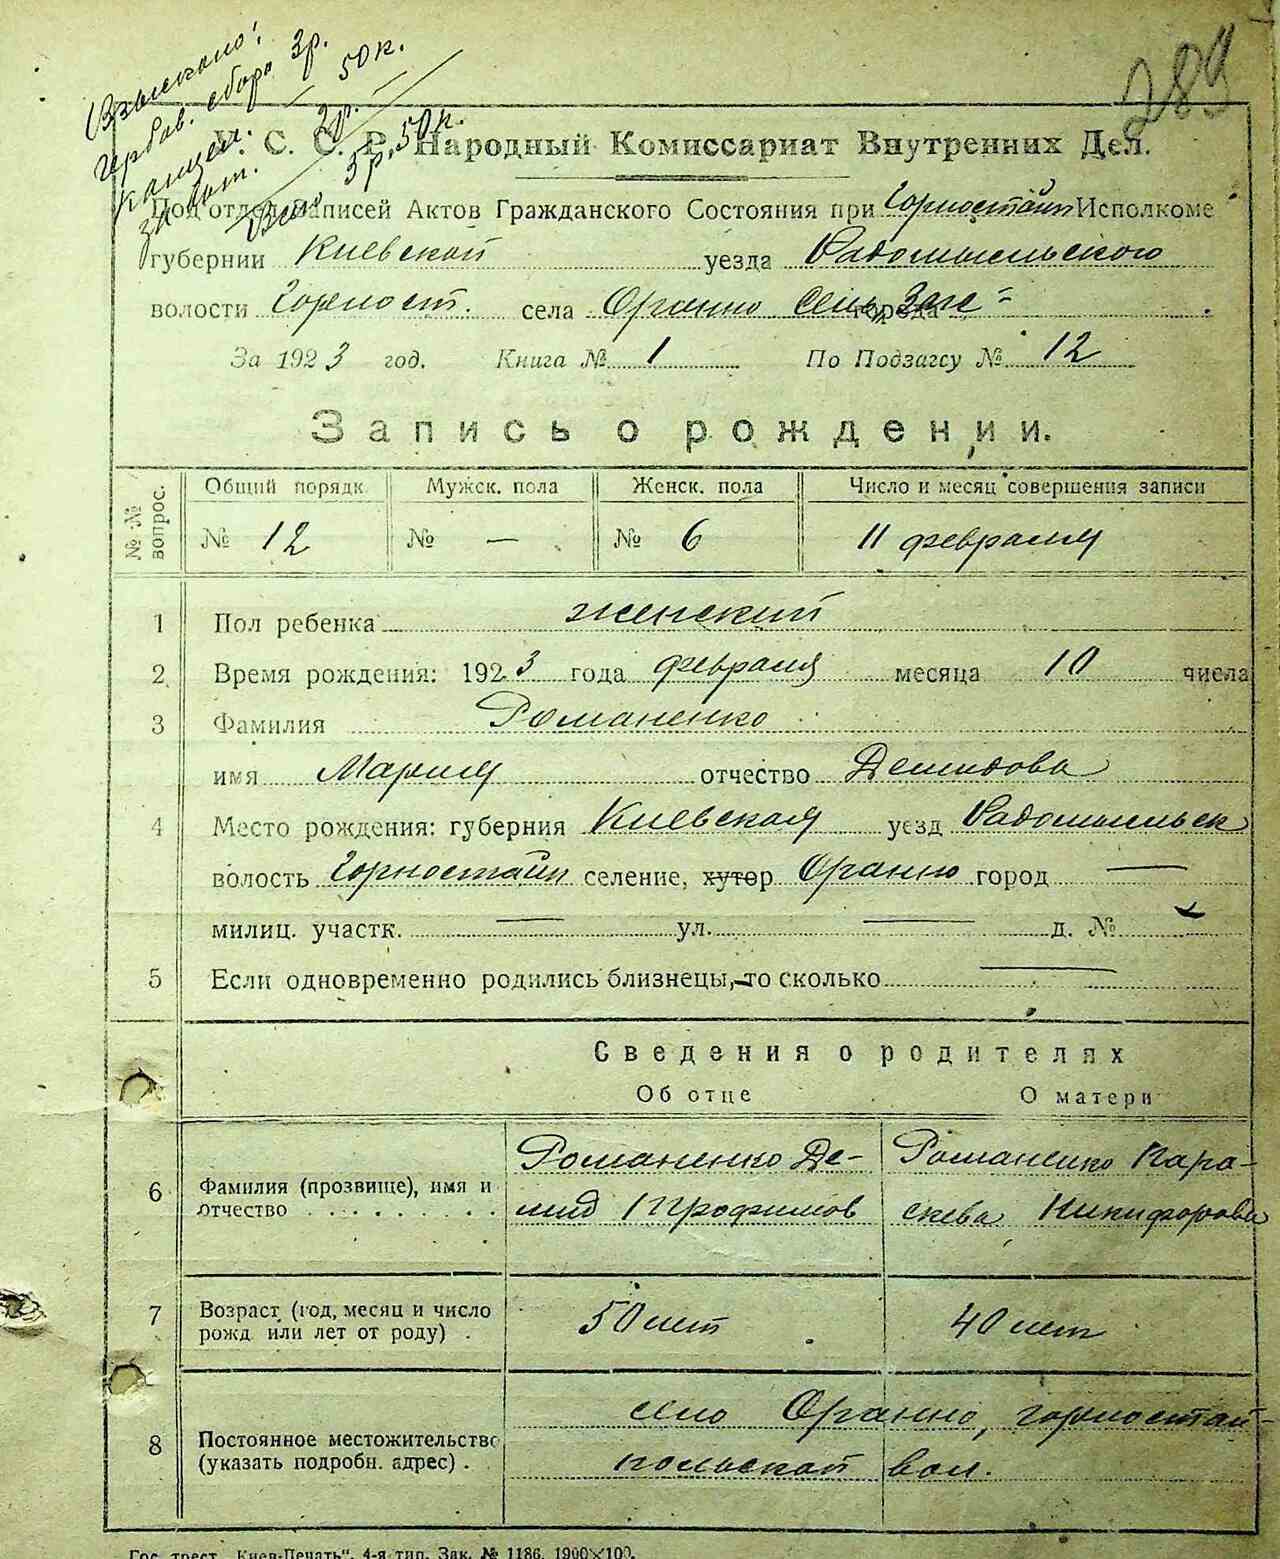 289
Взыскано:
гербов. сбора 3р.
канцел. — 50к.
за бат. 2р.
Всего 5р. 50к.
У. С. С. Р. Народный Комиссариат Внутренних Дел.
Подотдел Записей Актов Гражданского Состояния при Горностайп Исполкоме
губернии Киевской уезда Радомысльского
волости Горност. села Оранно города
За 1923 год. Книга № 1 По Подзагсу № 12
Запись о рождении.
№ № вопрос. Общий порядк. Мужск. пола Женск. пола Число и месяц совершения записи
№ 12 № — № 6 11 февраля
1 Пол ребенка женский
2 Время рождения: 1923 года февраля месяца 10 числа
3 Фамилия Романенко
имя Мария отчество Демидова
4 Место рождения: губерния Киевская уезд Радомысльск
волость Горностайп селение, хутор Оранно город —
милиц. участк. — ул. — д. № —
5 Если одновременно родились близнецы,—то сколько —
Сведения о родителях
Об отце О матери
Романенко Де- Романенко Пара-
6 Фамилия (прозвище), имя и
отчество мид Трофимов скева Никифорова
7 Возраст (год, месяц и число 50 лет 40 лет
рожд или лет от роду)
село Оранно, горностай-
8 Постоянное местожительство
(указать подробн. адрес) польской вол.
Гос. трест „Киев-Печать“, 4-я тип. Зак. № 1186. 1900×100.